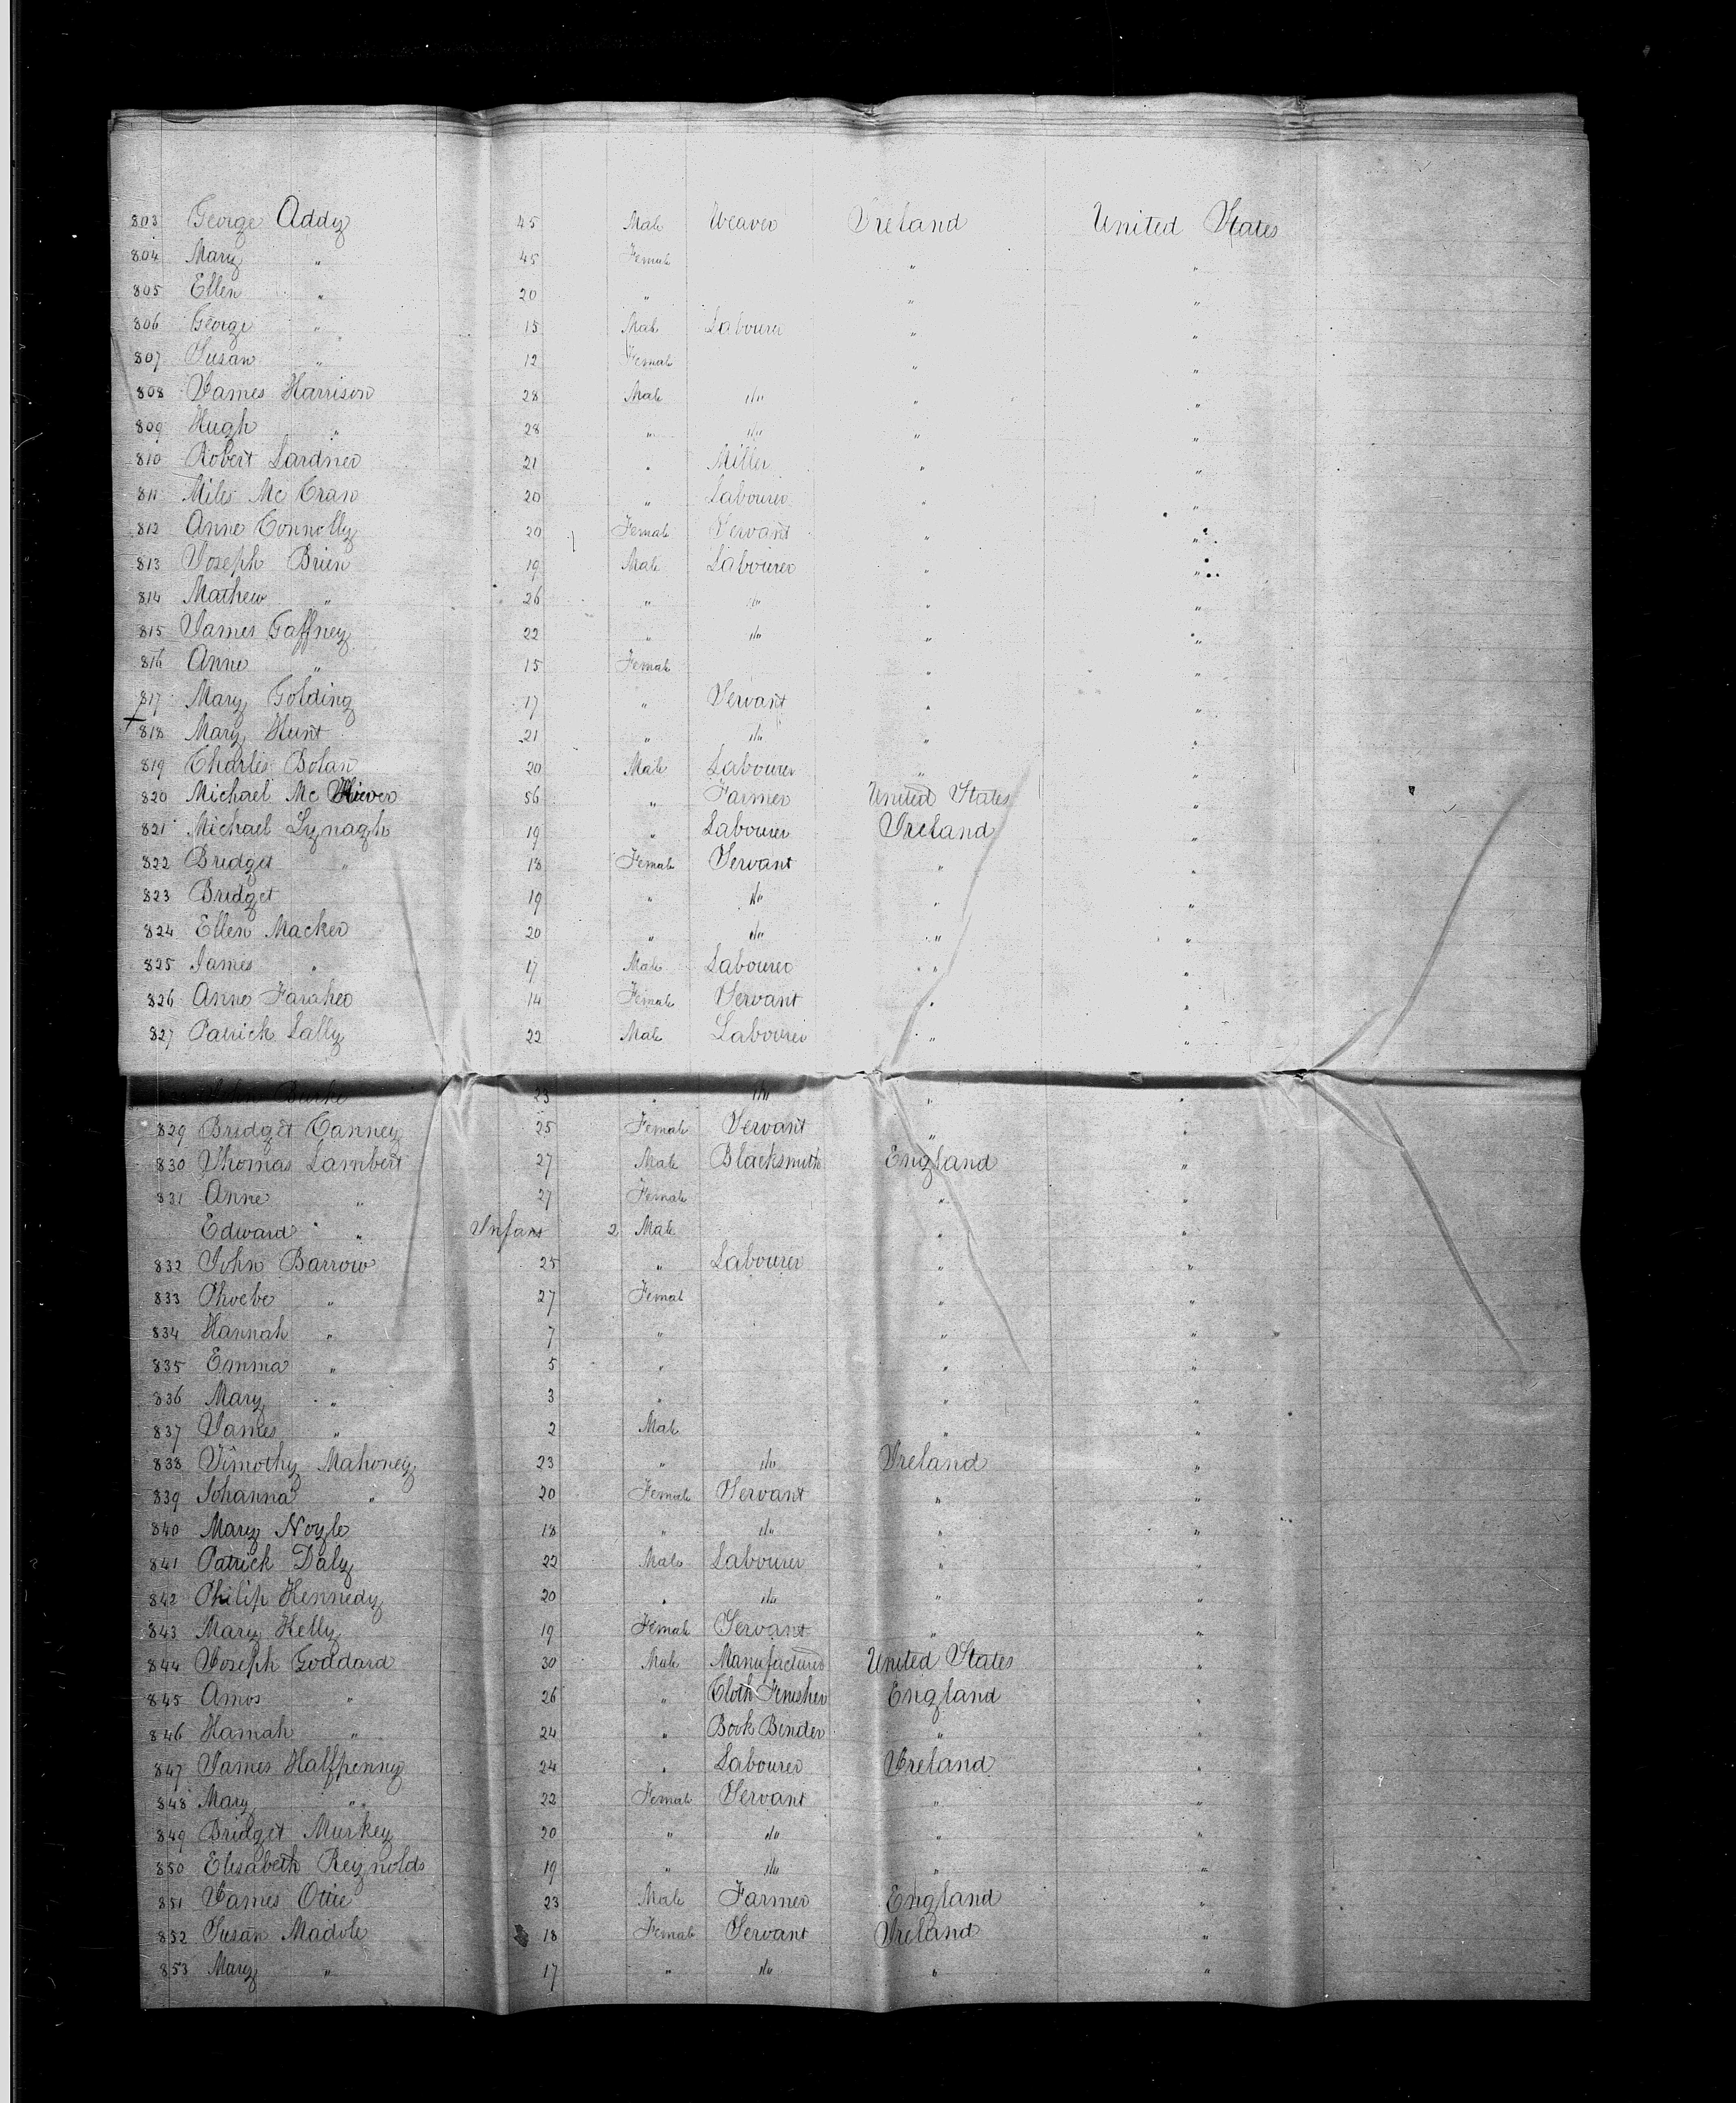 803 George Addy 45 Male Weaver Ireland United States
804 Mary " 45 Female " "
805 Ellen " 20 " " "
806 George " 15 Male Labourer " "
807 Susan " 12 Female " "
808 James Harrison 28 Male do " "
809 Hugh " 28 " do " "
810 Robert Lardner 21 " Miller " "
811 Miles Mc Cran 20 " Labourer " "
812 Anne Connolly 20 Female Servant " "
813 Joseph Brien 19 Male Labourer " "
814 Mathew " 26 " do " "
815 James Gaffney 22 " do " "
816 Anne " 15 Female " "
817 Mary Golding 17 " Servant " "
818 Mary Hunt 21 " do " "
819 Charles Bolan 20 Male Labourer " "
820 Michael Mc 56 " Farmer United States "
821 Michael Lynagh 19 " Labourer Ireland "
822 Bridget " 18 Female Servant " "
823 Bridget 19 " do " "
824 Ellen Macker 20 " do " "
825 James " 17 Male Labourer " "
826 Anne Faraher 14 Female Servant " "
827 Patrick Lally 22 Male Labourer " "
John Burke 23 " do " "
829 Bridget Canney 25 Female Servant " "
830 Thomas Lambert 27 Male Blacksmith England "
831 Anne " 27 Female " "
Edward " Infant 2 Male " "
832 John Barrow 25 " Labourer " "
833 Phoebe " 27 Femal " "
834 Hannah " 7 " " "
835 Emma " 5 " " "
836 Mary " 3 " " "
837 James " 2 Male " "
838 Timothy Mahoney 23 " do Ireland "
839 Johanna " 20 Female Servant " "
840 Mary Noyle 18 " do " "
841 Patrick Daly 22 Male Labourer " "
842 Philip Kennedy 20 " do " "
843 Mary Kelly 19 Female Servant " "
844 Joseph Goddard 30 Male Manufacturer United States "
845 Amos " 26 " Cloth Finisher England "
846 Hannah " 24 " Book Binder " "
847 James Halfpenny 24 " Labourer Ireland "
848 Mary " 22 Female Servant " "
849 Bridget Murkey 20 " do " "
850 Elisabeth Reynolds 19 " do " "
851 James Ottie 23 Male Farmer England "
852 Susan Madole 18 Female Servant Ireland "
853 Mary " 17 " do " "